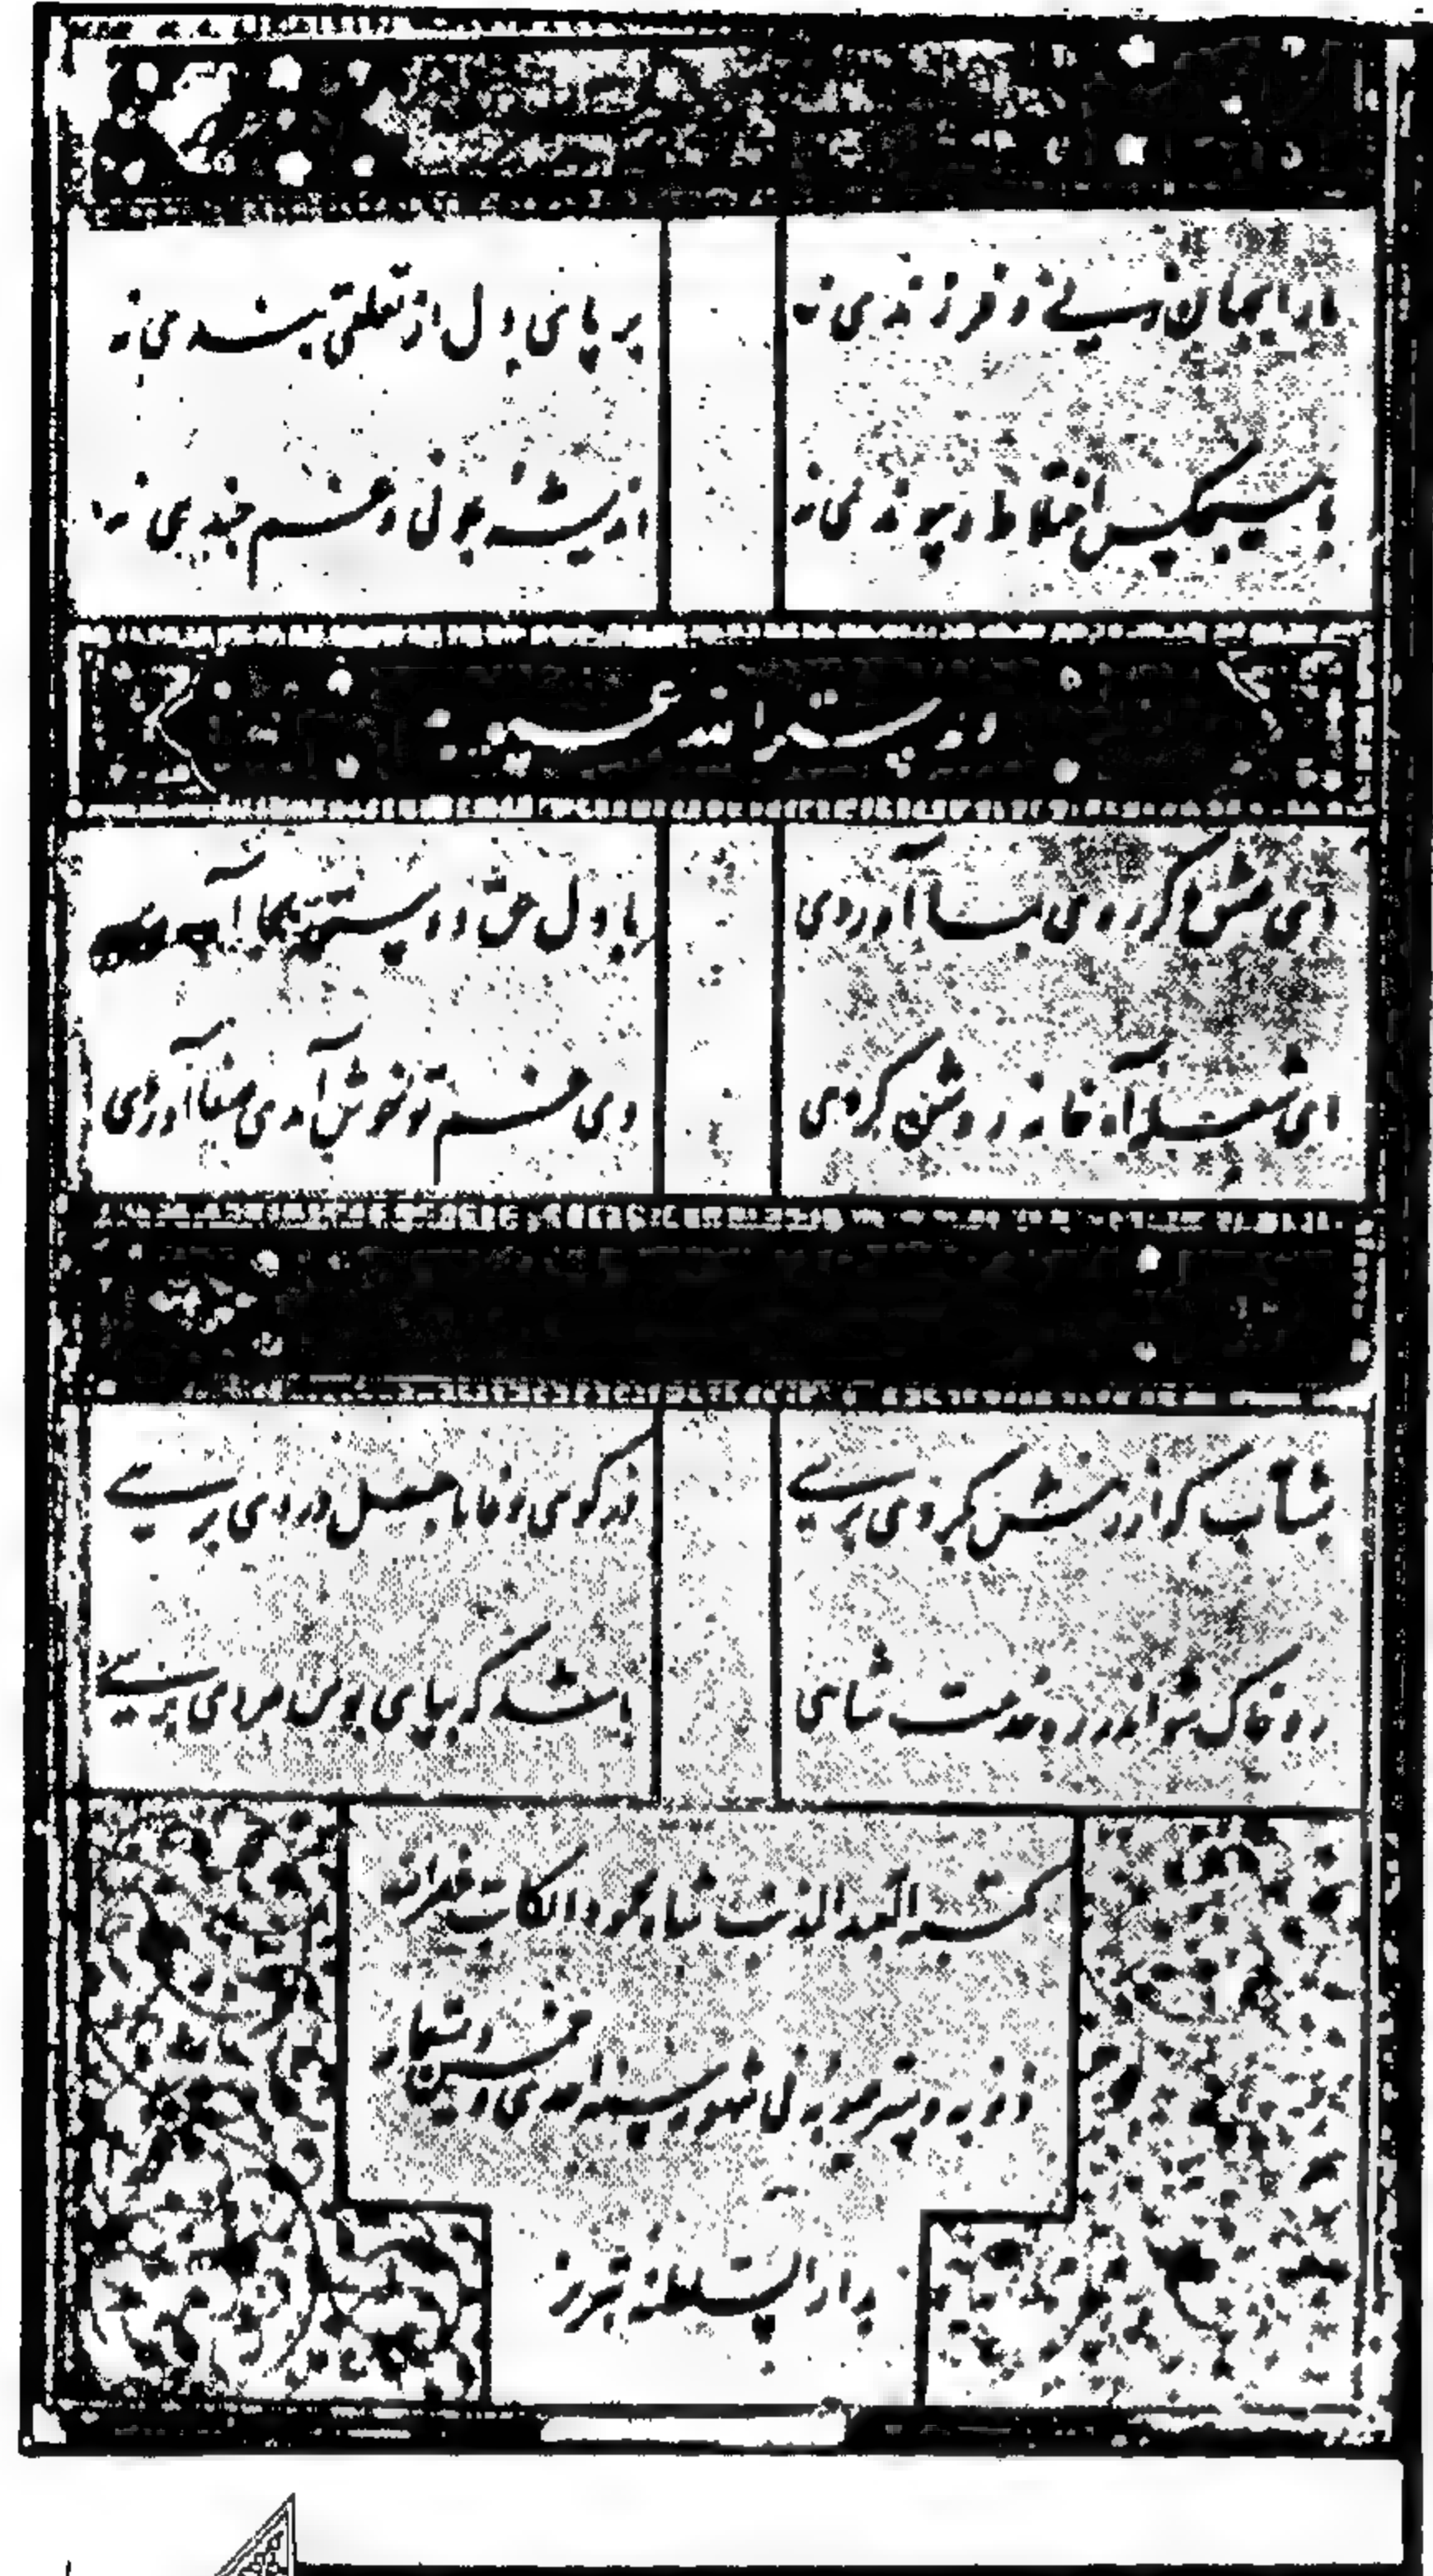 ما را بجهان زنی و فرزندی نه
بر پای دل از تعلقی بندی نه
با هیچکس اختلاط و پیوندی نه
اندیشه چونی و غم چندی نه
ای عشق کردی آوردی
با دل حق دوستی بجا
ای شعله آه خانه روشن کردی
وی غم تو خوش آمدی صفا آوردی
بشتاب که از رهش بگردی برسی
وز کوی وفا باهل دردی برسی
رو خاک شو اندر ره خدمت شاهی
باشد که بپای بوس مردی برسی
کتبه العبد المذنب شاه محمود الکاتب غفر الله
ذنوبه و ستر عیوبه فی شهور سنه احدی و عشرین و تسعمایه
بدار السلطنه تبریز